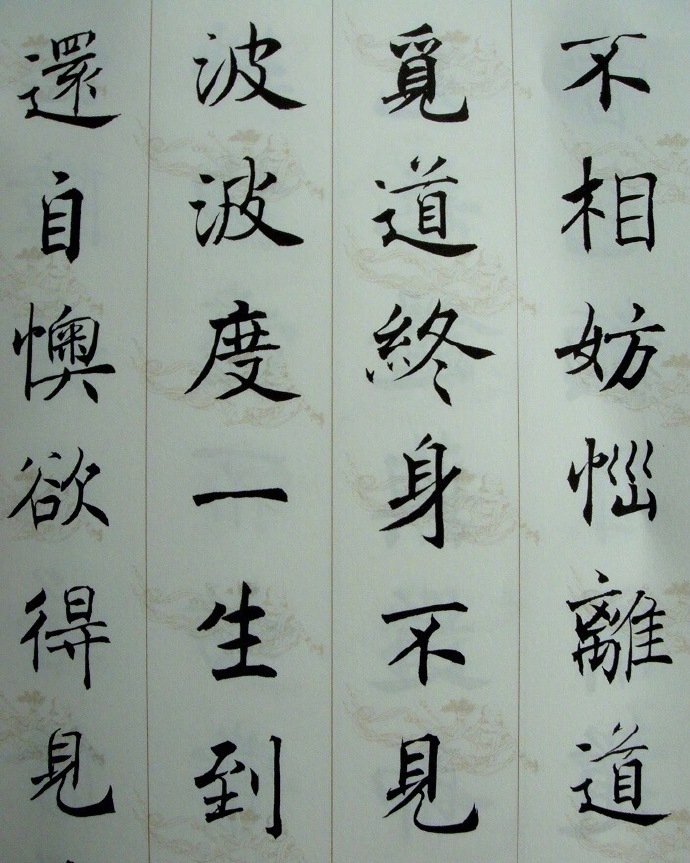 不相妨惱離道
覓道終身不見
波波度一生到
還自懊欲得見